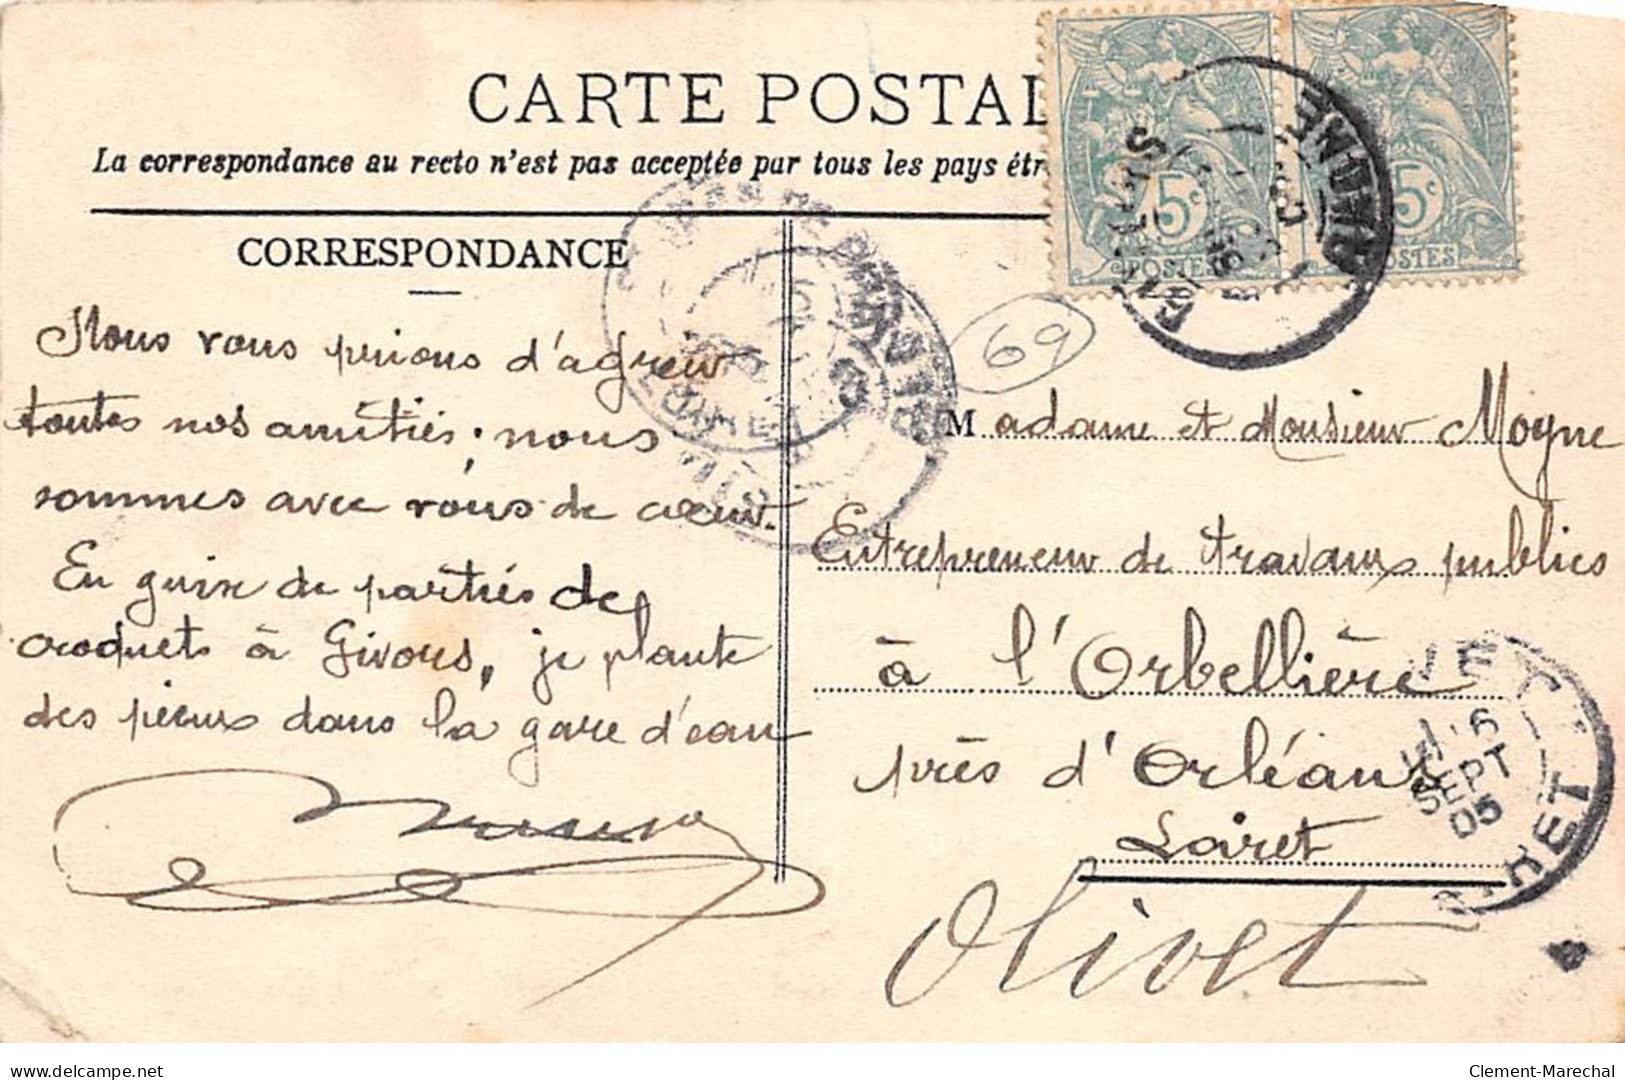 CARTE POSTAL
La correspondance au recto n'est pas acceptée par tous les pays étr
CORRESPONDANCE
Nous vous prions d'agréer
toutes nos amitiés; nous
sommes avec vous de cœur.
En guise de parties de
croquet à Givors, je plante
des pieux dans la gare d'eau
5c
POSTES
5c
POSTES
GIVORS
RHONE
69
Madame et Monsieur Moyne
Entrepreneur de travaux publics
à l'Orbellière
près d'Orléans
Loiret
Olivet
6
SEPT
05
LOIRET